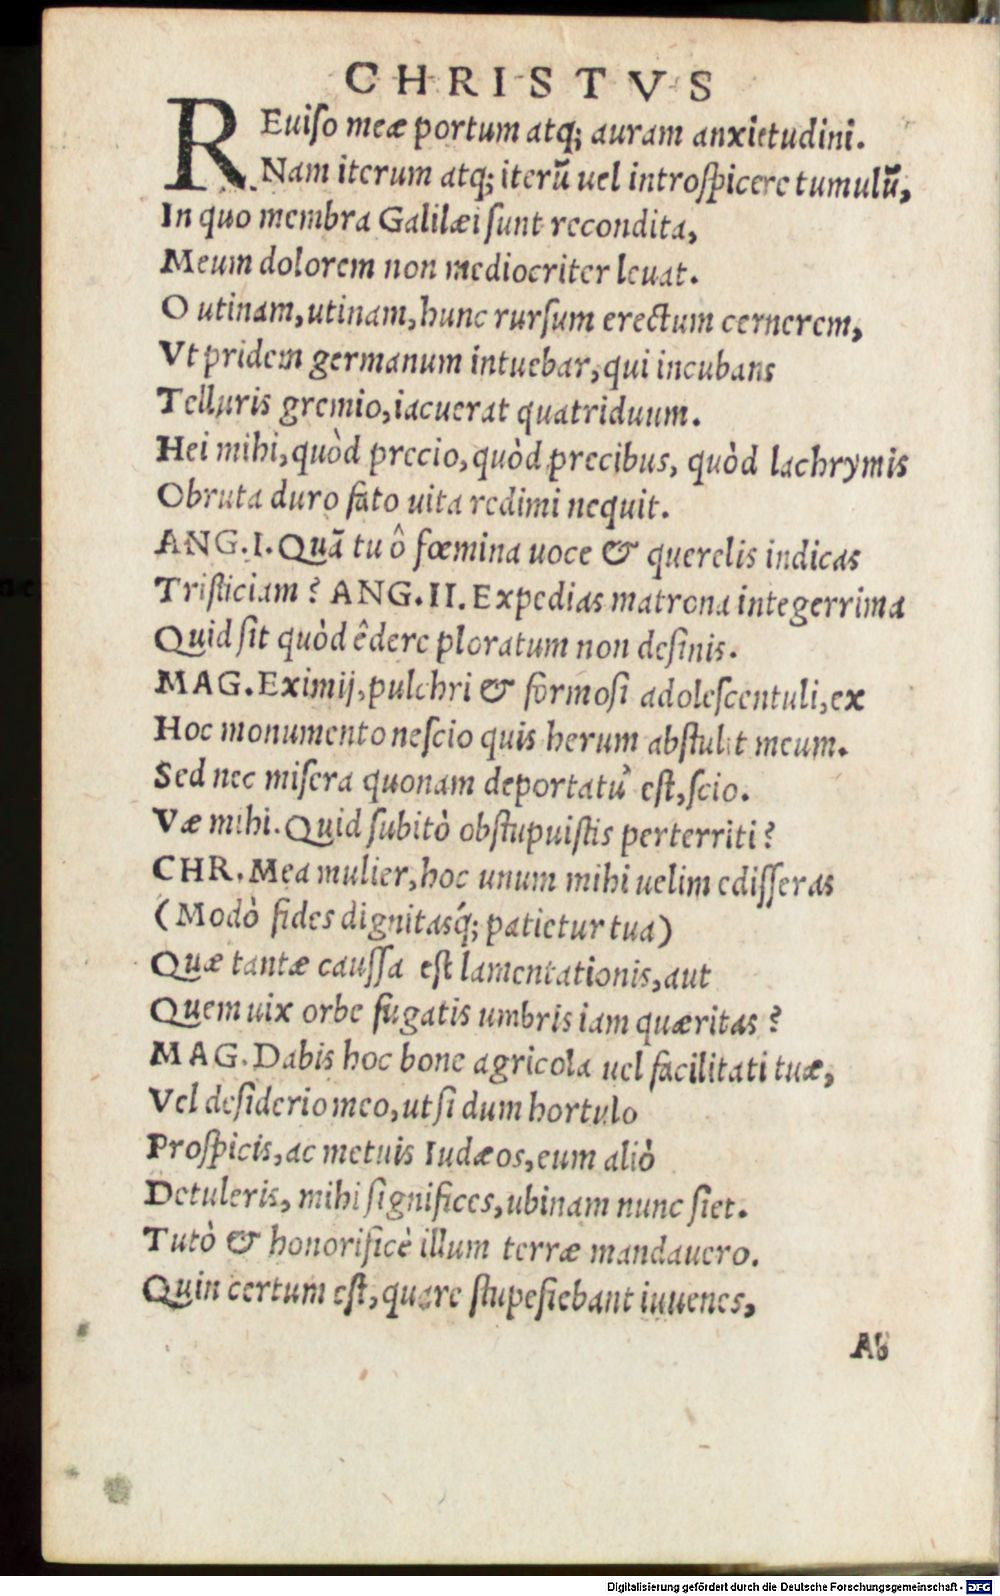 CHRISTVS
REuiſo meæ portum atq; auram anxietudini.
Nam iterum atq; iterũ uel introſpicere tumulũ,
In quo membra Galilæi ſunt recondita,
Meum dolorem non mediocriter leuat.
O utinam, utinam, hunc rurſum erectum cernerem,
Vt pridem germanum intuebar, qui incubans
Telluris gremio, iacuerat quatriduum.
Hei mihi, quòd precio, quòd precibus, quòd lachrymis
Obruta duro fato uita redimi nequit.
ANG.I. Quã tu ô fœmina uoce & querelis indicas
Triſticiam? ANG.II. Expedias matrona integerrima
Quid ſit quòd êdere ploratum non deſinis.
MAG. Eximij, pulchri & formoſi adoleſcentuli, ex
Hoc monumento neſcio quis herum abſtulit meum.
Sed nec miſera quonam deportatuꝰ eſt, ſcio.
Væ mihi. Quid ſubitò obſtupuiſtis perterriti?
CHR. Mea mulier, hoc unum mihi uelim ediſſeras
(Modò fides dignitasq́; patietur tua)
Quæ tantæ cauſſa eſt lamentationis, aut
Quem uix orbe fugatis umbris iam quæritas?
MAG. Dabis hoc bone agricola uel facilitati tuæ,
Vel deſiderio meo, ut ſi dum hortulo
Proſpicis, ac metuis Iudæos, eum aliò
Detuleris, mihi ſignifices, ubinam nunc ſiet.
Tutò & honorificè illum terræ mandauero.
Quin certum eſt, quare ſtupefiebant iuuenes,
Ab
Digitalisierung gefördert durch die Deutsche Forschungsgemeinschaft - DFG